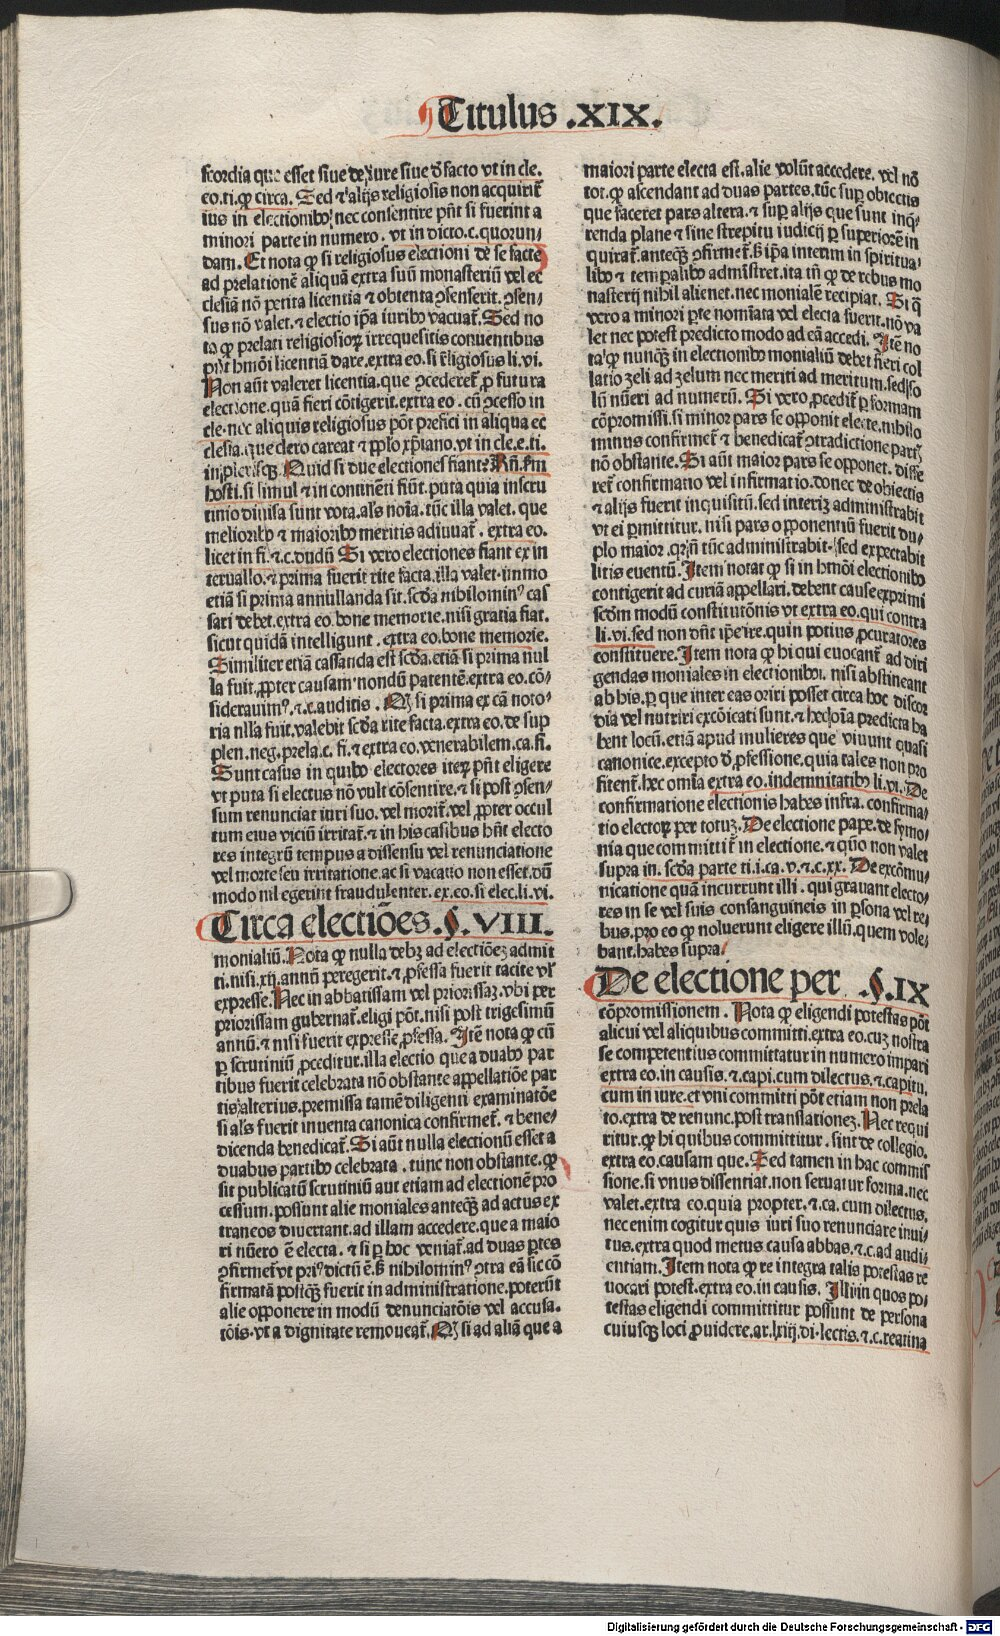 Titulus .XIX.
scordia que esset siue de iure siue d̄ facto vt in cle.
eo.ti.ꝙ circa. Sed ⁊ alijs religiosis non acquirit̄
ius in electionibꝰ nec consentire pn̄t si fuerint a
minori parte in numero . vt in dicto.c.quorun⸗
dam. Et nota ꝙ si religiosus electioni de se facte
ad prelationē aliquā extra suū monasteriū vel ec
clesiā nō petita licentia ⁊ obtenta ꝯsenserit. ꝯsen⸗
sus nō valet.⁊ electio ip̄a iuribꝰ vacuat̄. Sed no
ta ꝙ prelati religiosoꝝ irrequesitis conuentibus
pn̄t hmōi licentiā dare.extra eo.si religiosus li.vi.
Non aūt valeret licentia.que ꝯcederet̄ ꝓ futura
electione.quā fieri cōtigerit.extra eo . cū ꝯcesso in
cle.nec aliquis religiosus pōt prefici in aliqua ec
clesia.que clero careat ⁊ pplo xp̄iano.vt in cle.e.ti.
in pleriſqꝫ. Quid si due electiones fiant? Rn̄.ſm̄
hosti.si simul ⁊ in continēti fiūt.puta quia in scru
tinio diuisa sunt vota.als noīa. tūc illa valet. que
melioribꝰ ⁊ maioribꝰ meritis adiuuat̄ . extra eo.
licet in fi.⁊.c.dudū Si vero electiones fiant ex in
teruallo.⁊ prima fuerit rite facta.illa valet.immo
etiā si prima annullanda sit.scḋa nihilominꝰ cas
sari debet.extra eo.bone memorie.nisi gratia fiat.
sicut quidā intelligunt . extra eo.bone memorie.
Similiter etiā cassanda est scḋa.etiā si prima nul
la fuit.ꝓpter causam nondū patentē.extra eo.cō⸗
siderauimꝰ.⁊.c.auditis . Qꝫ si prima ex cā noto⸗
ria nulla fuit.valebit scḋa rite facta.extra eo.de sup
plen.neg.prela.c. fi.⁊ extra eo.venerabilem.ca.fi.
Sunt casus in quibꝰ electores iteꝝ pn̄t eligere
vt puta si electus nō vult cōsentire.⁊ si post ꝯsen⸗
sum renunciat iuri suo. vel morit̄.vel ꝓpter occul
tum eius viciū irritat̄.⁊ in his casibus hn̄t electo
res integrū tempus a dissensu vel renunciatione
vel morte seu irritatione.ac si vacatio non esset.dū
modo nil egerint fraudulenter. ex.eo.si elec.li.vi.
Circa electiōes.§.VIII.
monialiū. Nota ꝙ nulla debꝫ ad electiōeꝫ admit
ti.nisi.xij.annū peregerit.⁊ ꝓfessa fuerit tacite vl̓
expresse. Nec in abbatissam vel priorissaꝫ. vbi per
priorissam gubernat̄.eligi pōt.nisi post trigesimū
annū.⁊ nisi fuerit expresse ꝓfessa. Itē nota ꝙ cū
ꝑ scrutiniū ꝓceditur.illa electio que a duabꝰ par
tibus fuerit celebrata nō obstante appellatiōe par
tis alterius.premissa tamē diligenti examinatōe
si als fuerit inuenta canonica confirmet̄. ⁊ bene⸗
dicenda benedicat̄. Si aūt nulla electionū esset a
duabus partibꝰ celebrata . tunc non obstante. ꝙ
sit publicatū scrutiniū aut etiam ad electionē pro
cessum.possunt alie moniales anteqꝫ̄ ad actus ex
traneos diuertant.ad illam accedere.que a maio
ri nūero ē electa. ⁊ si ꝑ hoc veniat̄.ad duas ꝑtes
ꝯfirmet̄ vt priꝰ dictū ē.ß nihilominꝰ ꝯtra eā sic cō
firmatā postqꝫ̄ fuerit in administratione.poterūt
alie opponere in modū denunciatōis vel accusa.
tōis.vt a dignitate remoueat̄. Qꝫ si ad aliā que a
maiori parte electa est.alie volūt accedere. vel nō
tot.ꝙ ascendant ad duas partes.tūc suꝑ obiectis
que faceret pars altera.⁊ suꝑ alijs que sunt inq̄⸗
renda plane ⁊ sine strepitu iudicij ꝑ superiorē in
quirat̄.anteqꝫ̄ ꝯfirmet̄.ß ip̄a interim in spiritua⸗
libꝰ ⁊ temꝑalibꝰ administret.ita tn̄ ꝙ de rebus mo
nasterij nihil alienet.nec monialē recipiat. Si q̄
vero a minori ꝑte nomīata vel electa fuerit.nō va
let nec potest predicto modo ad eā accedi. Itē no
ta ꝙ nunqꝫ̄ in electionibꝰ monialiū debet fieri col
latio zeli ad zelum nec meriti ad meritum.sed so
lū nūeri ad numerū. Si vero ꝓcedit̄ ꝑ formam
cōpromissi.si minor pars se opponit electe.nihilo
minus confirmet̄ ⁊ benedicat̄ ꝯtradictione partꝭ
nō obstante. Si aūt maior pars se opponet. diffe
ret̄ confirmatio vel infirmatio.donec de obiectis
⁊ alijs fuerit inquisitū.sed interiꝫ administrabit
vt ei ꝑmittitur. nisi pars opponentiū fuerit du⸗
plo maior.qꝛn̄ tūc administrabit.sed expectabit
litis euentū. Item notat ꝙ si in hmōi electionibꝰ
contigerit ad curiā appellari.debent cause exprimi
scḋm modū constitutōnis vt extra eo.qui contra
li.vi.sed non dn̄t ip̄e ire.quin potius ꝓcuratores
constituere. Item nota ꝙ hi qui euocant̄ ad diri
gendas moniales in electionibꝰ. nisi abstineant
ab his.ꝑ que inter eas oriri posset circa hoc discor
dia vel nutriri excōicati sunt.⁊ hec oīa predicta ha
bent locū.etiā apud mulieres que viuunt quasi
canonice.excepto d̄ ꝓfessione.quia tales non pro
fitent̄.hec omīa extra eo.indemnitatibꝰ li.vi. De
confirmatione electionis habes infra. confirma⸗
tio electoꝝ per totuꝫ. De electione pape. de symo⸗
nia que committit̄ in electione.⁊ qn̄o non valet
supra in. scḋa parte ti.i.ca.v.⁊.c.xx. De excōmu⸗
nicatione quā incurrunt illi . qui grauant electo⸗
res in se vel suis consanguineis in ꝑsona vel re⸗
bus.pro eo ꝙ noluerunt eligere illū.quem vole⸗
bant.habes supra/
De electione per .§.IX
cōpromissionem . Nota ꝙ eligendi potestas pōt
alicui vel aliquibus committi.extra eo.cuꝫ nostra
se competentius committatur in numero impari
extra eo.in causis.⁊.capi.cum dilectus.⁊.capitu.
cum in iure.et vni committi pōt etiam non prela
to.extra de renunc.post translationeꝫ. Nec requi
ritur.ꝙ hi quibus committitur. sint de collegio.
extra eo.causam que. Sed tamen in hac commis
sione.si vnus dissentiat.non seruatur forma.nec
valet.extra eo.quia propter.⁊.ca. cum dilectus.
nec enim cogitur quis iuri suo renunciare inui⸗
tus.extra quod metus causa abbas.⁊.c.ad audi⸗
entiam. Item nota ꝙ re integra talis potestas re
uocari potest.extra eo.in causis. Illi in quos po⸗
testas eligendi committitur possunt de persona
cuiusqꝫ loci ꝓuidere.ar.lxiij.di.lectis.⁊.c.reatina
Digitalisierung gefördert durch die Deutsche Forschungsgemeinschaft - DFG